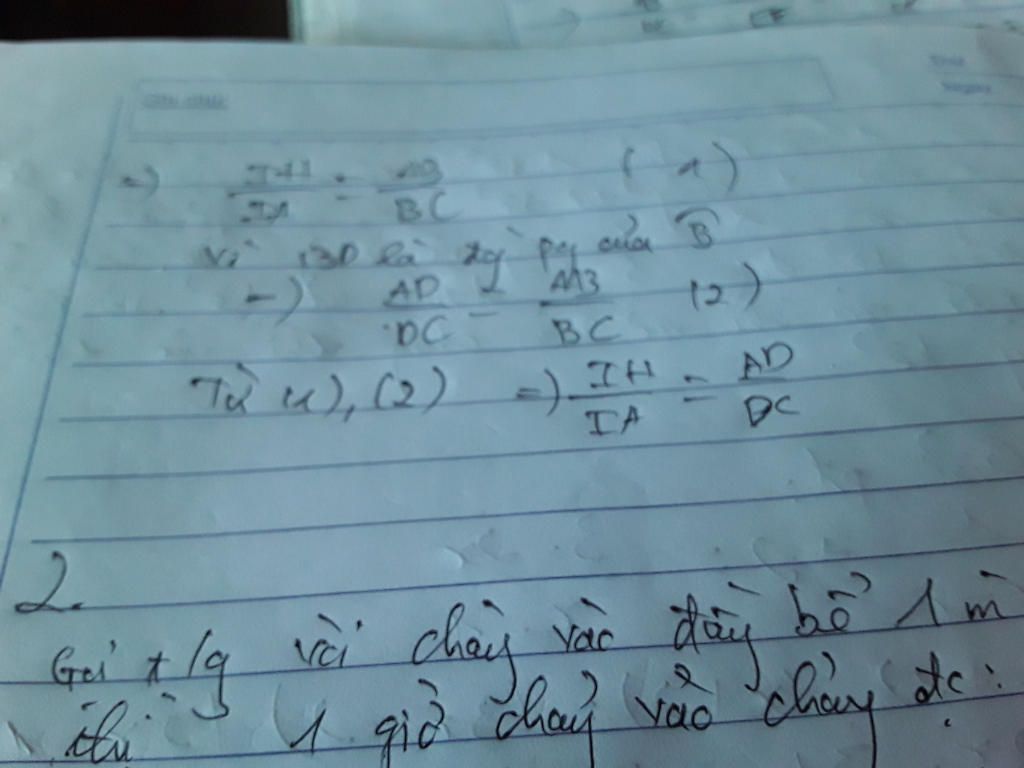 =) IH/IA = AB/BC (1)
Vì BD là tg pg của B̂
=) AD/DC = AB/BC (2)
Từ (1), (2) =) IH/IA = AD/DC
2.
Gọi t/g vòi chảy vào đầy bể 1 m
thì 1 giờ chảy vào chảy đc: